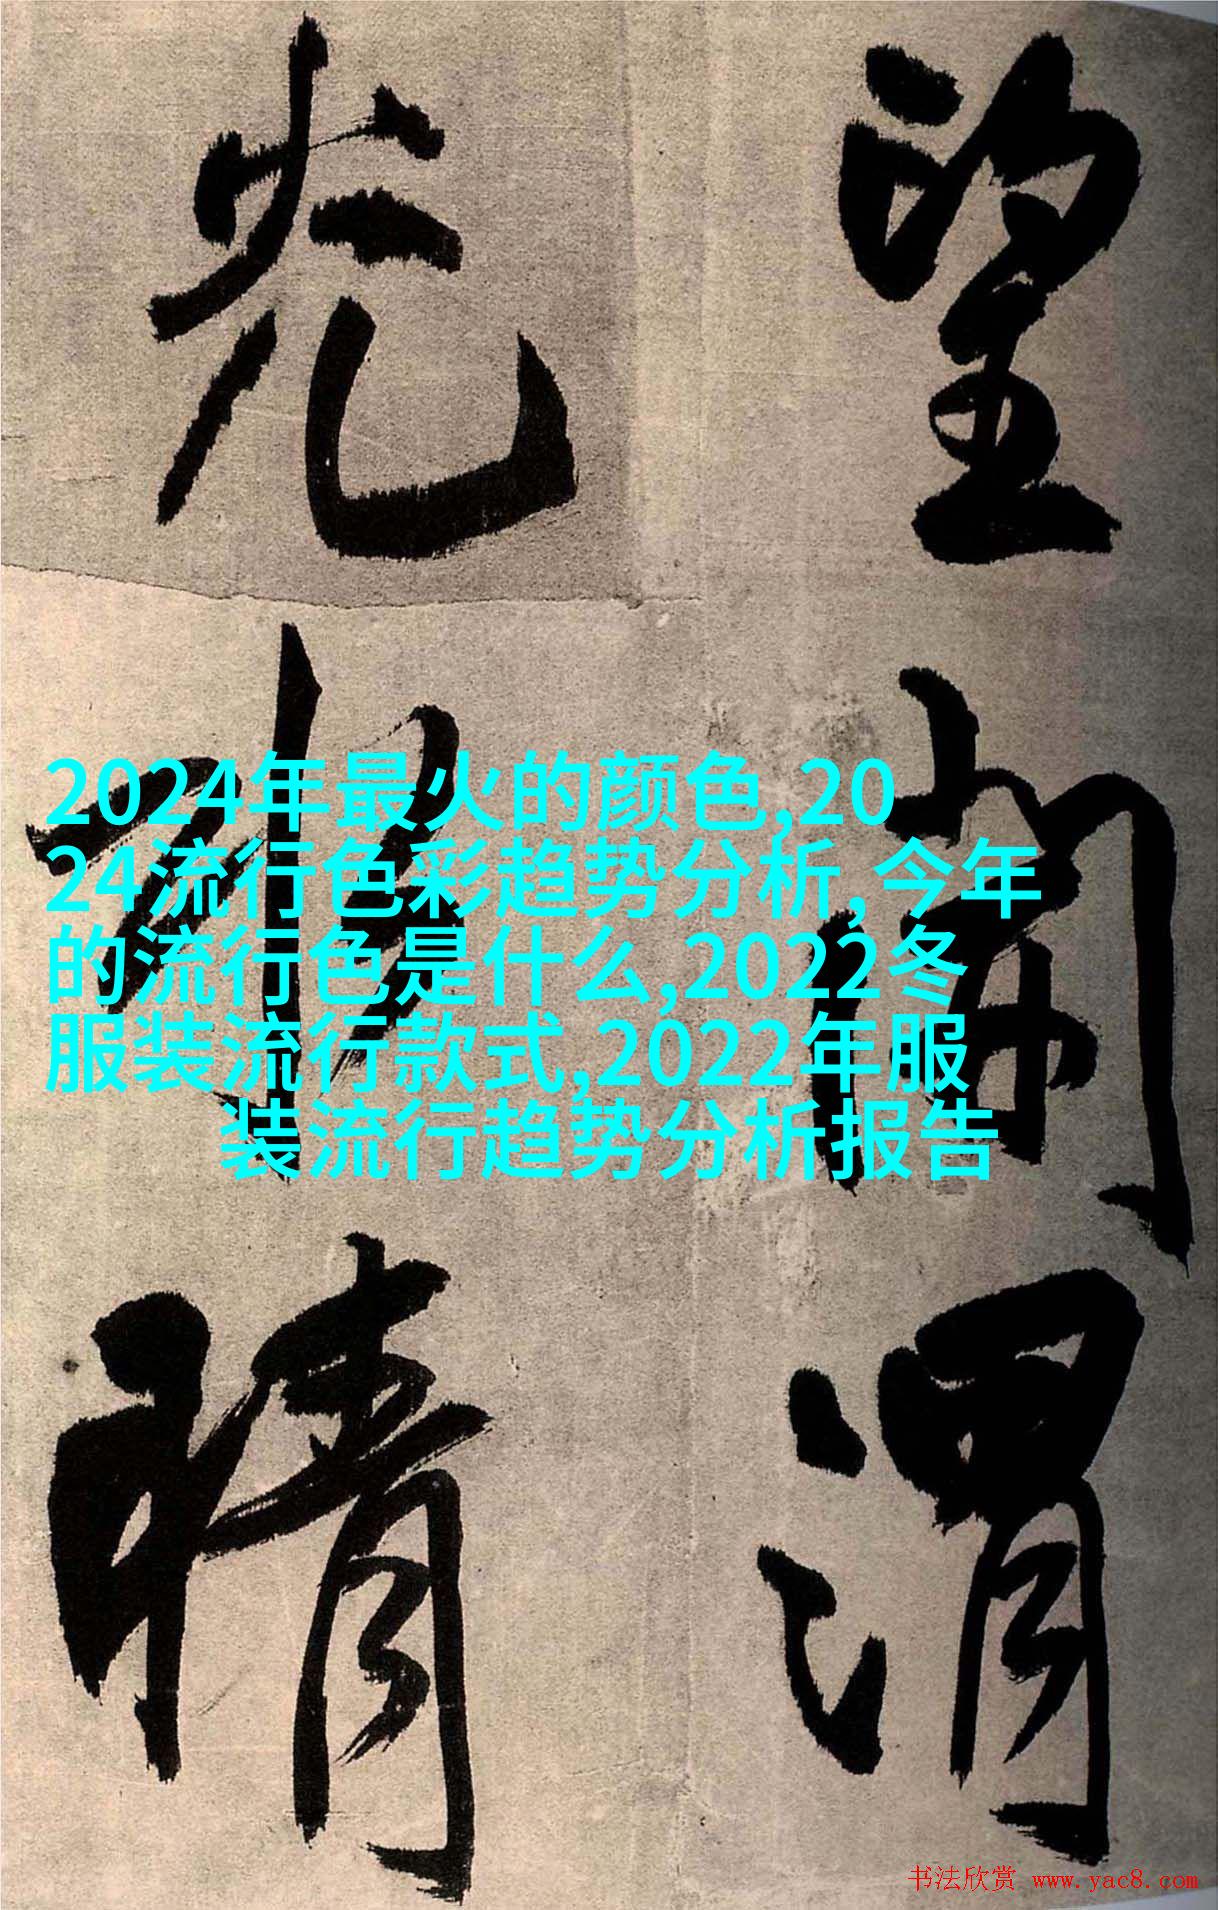 望渭
光水晴
2024年最火的颜色,20
24流行色彩趋势分析, 今年
的流行色是什么,2022冬
服装流行款式,2022年服
装流行趋势分析报告
书法欣赏 www.yac8.com